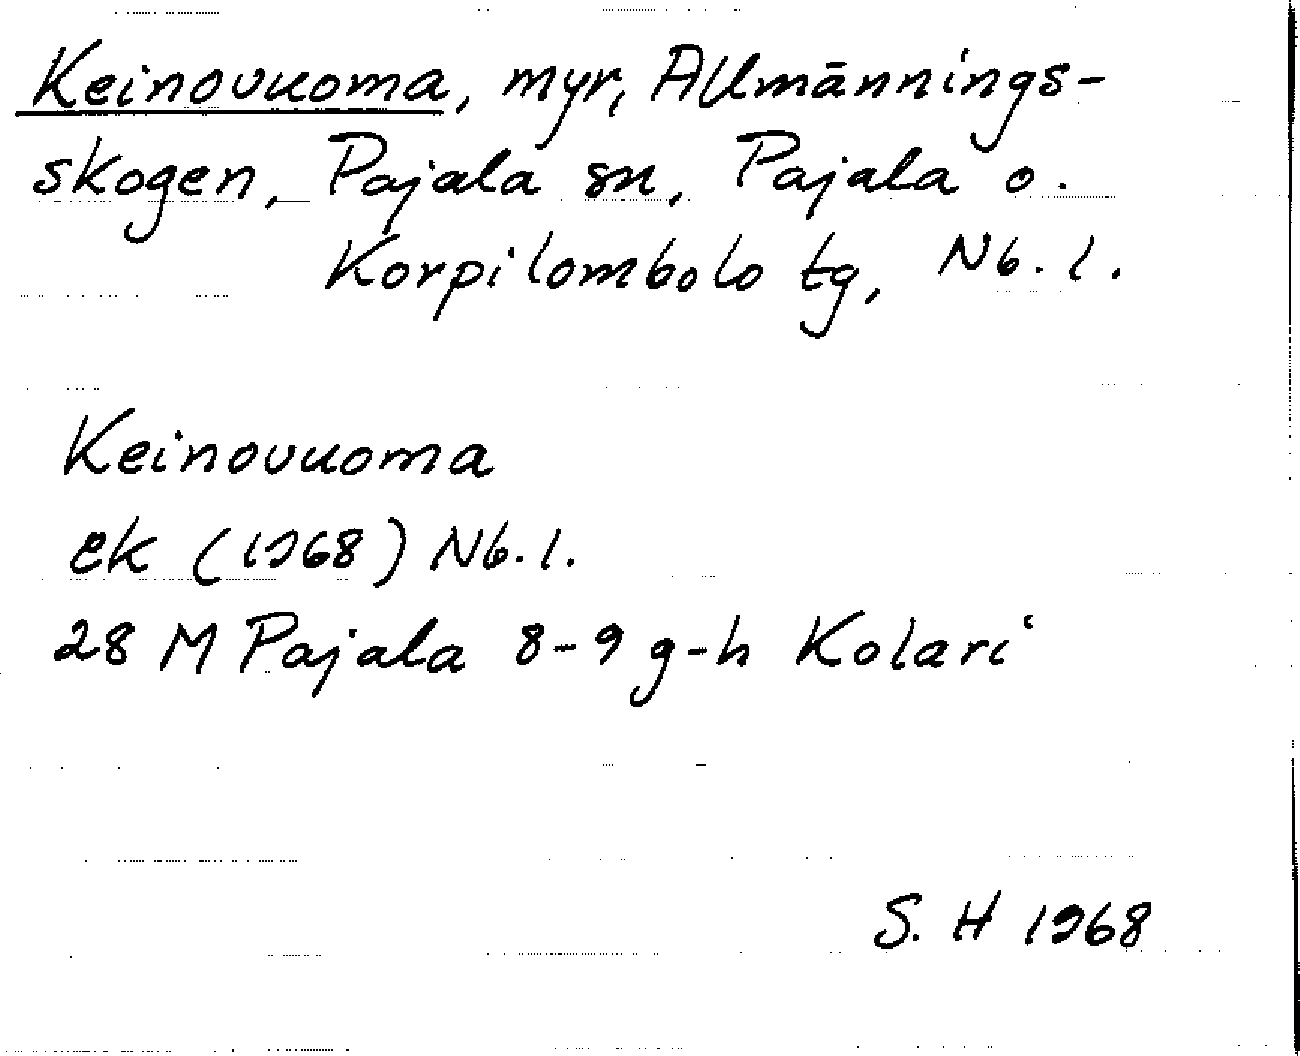 Keinovuoma, myr, Allmännings-
skogen, Pajala sn, Pajala o.
Korpilombolo tg, Nb. l.
Keinovuoma
ek (1968) Nb. l.
28 M Pajala 8-9 g-h Kolari
S. H 1968